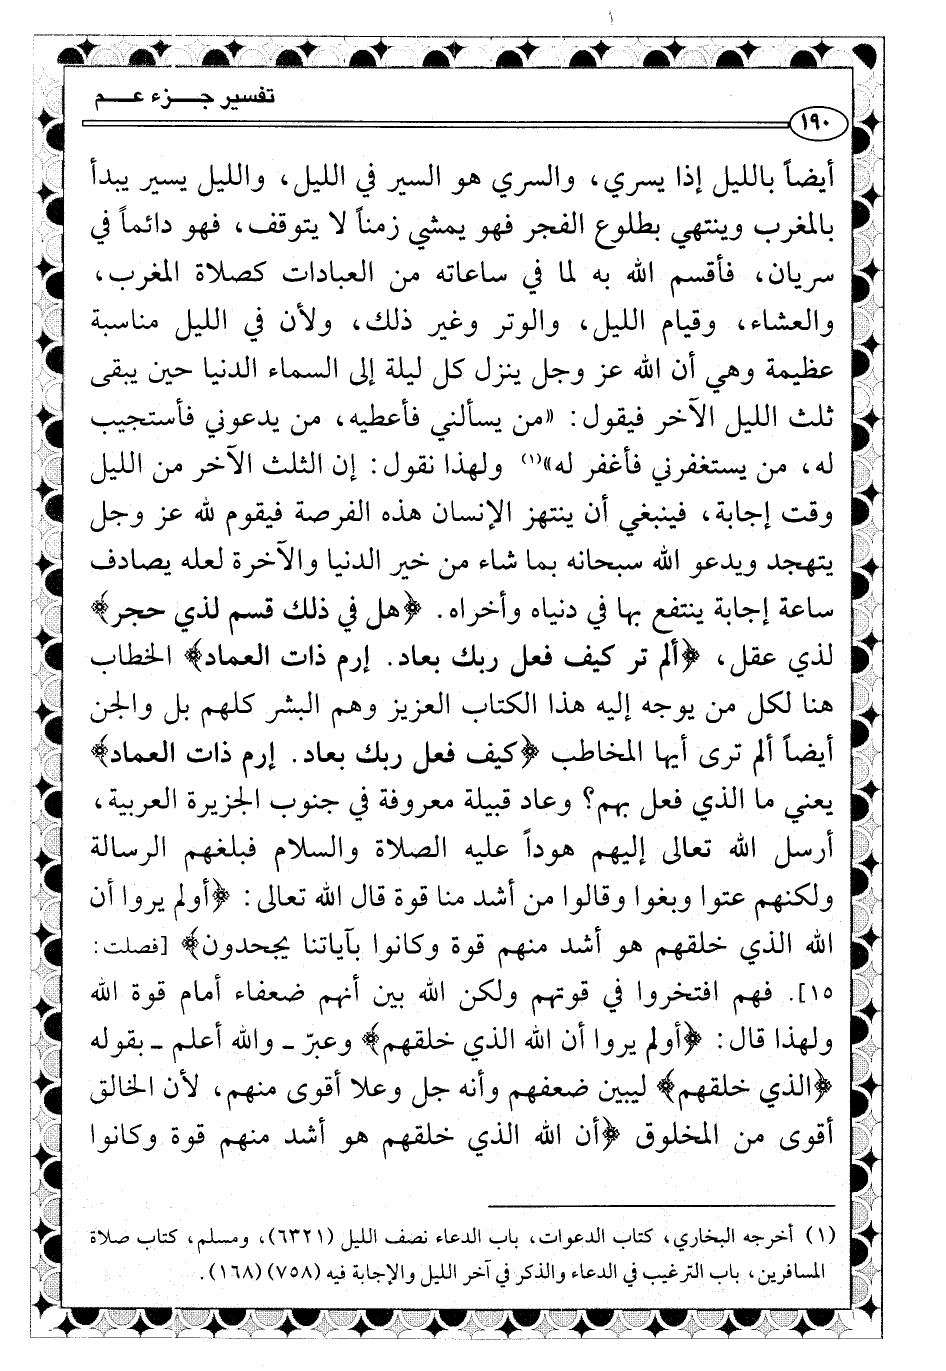 تفسير جـــزء عـــم
١٩٠
أيضاً بالليل إذا يسري، والسري هو السير في الليل، والليل يسير يبدأ
بالمغرب وينتهي بطلوع الفجر فهو يمشي زمناً لا يتوقف، فهو دائماً في
سريان، فأقسم الله به لما في ساعاته من العبادات كصلاة المغرب،
والعشاء، وقيام الليل، والوتر وغير ذلك، ولأن في الليل مناسبة
عظيمة وهي أن الله عز وجل ينزل كل ليلة إلى السماء الدنيا حين يبقى
ثلث الليل الآخر فيقول: «من يسألني فأعطيه، من يدعوني فأستجيب
له، من يستغفرني فأغفر له»(١) ولهذا نقول: إن الثلث الآخر من الليل
وقت إجابة، فينبغي أن ينتهز الإنسان هذه الفرصة فيقوم لله عز وجل
يتهجد ويدعو الله سبحانه بما شاء من خير الدنيا والآخرة لعله يصادف
ساعة إجابة ينتفع بها في دنياه وأخراه. ﴿هل في ذلك قسم لذي حجر﴾
لذي عقل، ﴿ألم تر كيف فعل ربك بعاد. إرم ذات العماد﴾ الخطاب
هنا لكل من يوجه إليه هذا الكتاب العزيز وهم البشر كلهم بل والجن
أيضاً ألم ترى أيها المخاطب ﴿كيف فعل ربك بعاد. إرم ذات العماد﴾
يعني ما الذي فعل بهم؟ وعاد قبيلة معروفة في جنوب الجزيرة العربية،
أرسل الله تعالى إليهم هوداً عليه الصلاة والسلام فبلغهم الرسالة
ولكنهم عتوا وبغوا وقالوا من أشد منا قوة قال الله تعالى: ﴿أولم يروا أن
الله الذي خلقهم هو أشد منهم قوة وكانوا بآياتنا يجحدون﴾ [فصلت:
١٥]. فهم افتخروا في قوتهم ولكن الله بين أنهم ضعفاء أمام قوة الله
ولهذا قال: ﴿أولم يروا أن الله الذي خلقهم﴾ وعبرّ ـ والله أعلم ـ بقوله
﴿الذي خلقهم﴾ ليبين ضعفهم وأنه جل وعلا أقوى منهم، لأن الخالق
أقوى من المخلوق ﴿أن الله الذي خلقهم هو أشد منهم قوة وكانوا
(١) أخرجه البخاري، كتاب الدعوات، باب الدعاء نصف الليل (٦٣٢١)، ومسلم، كتاب صلاة
المسافرين، باب الترغيب في الدعاء والذكر في آخر الليل والإجابة فيه (٧٥٨) (١٦٨).